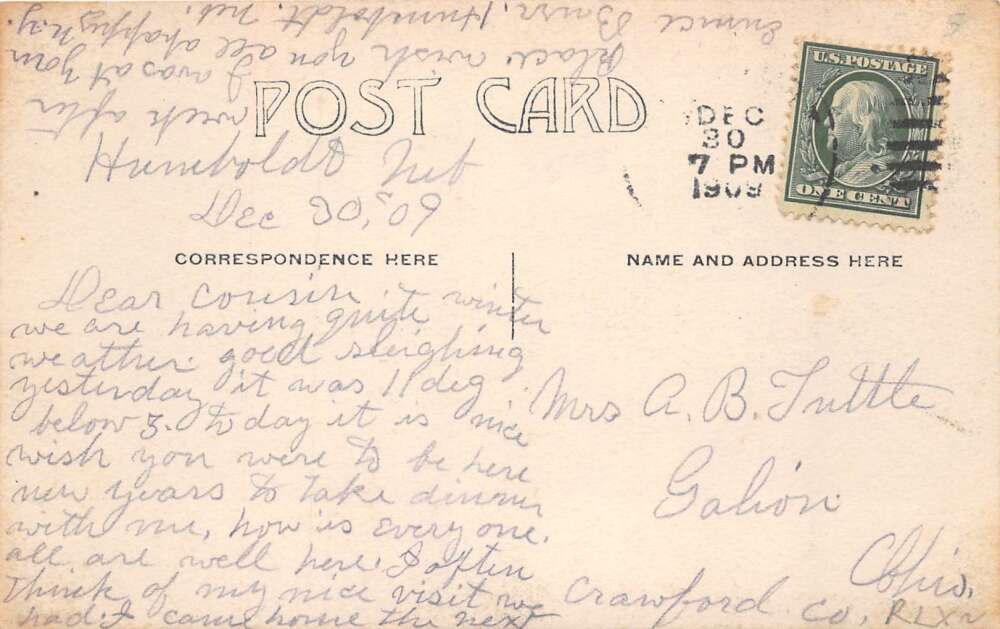 POST CARD
U.S. POSTAGE
ONE CENT
DEC
30
7 PM
1909
Humboldt Neb
Dec 30, 09
CORRESPONDENCE HERE
NAME AND ADDRESS HERE
Dear cousin
we are having quite winter
weather. good sleighing
yesterday it was 11 deg
below z. to day it is nice
wish you were to be here
new years to take dinner
with me, how is everyone.
all are well here. I often
think of my nice visit we
had. I came home the next
week after
I was at your
place wish you all a happy N.y
Burr, Humboldt. Neb.
Mrs A. B. Tuttle
Galion
Ohio.
Crawford Co,